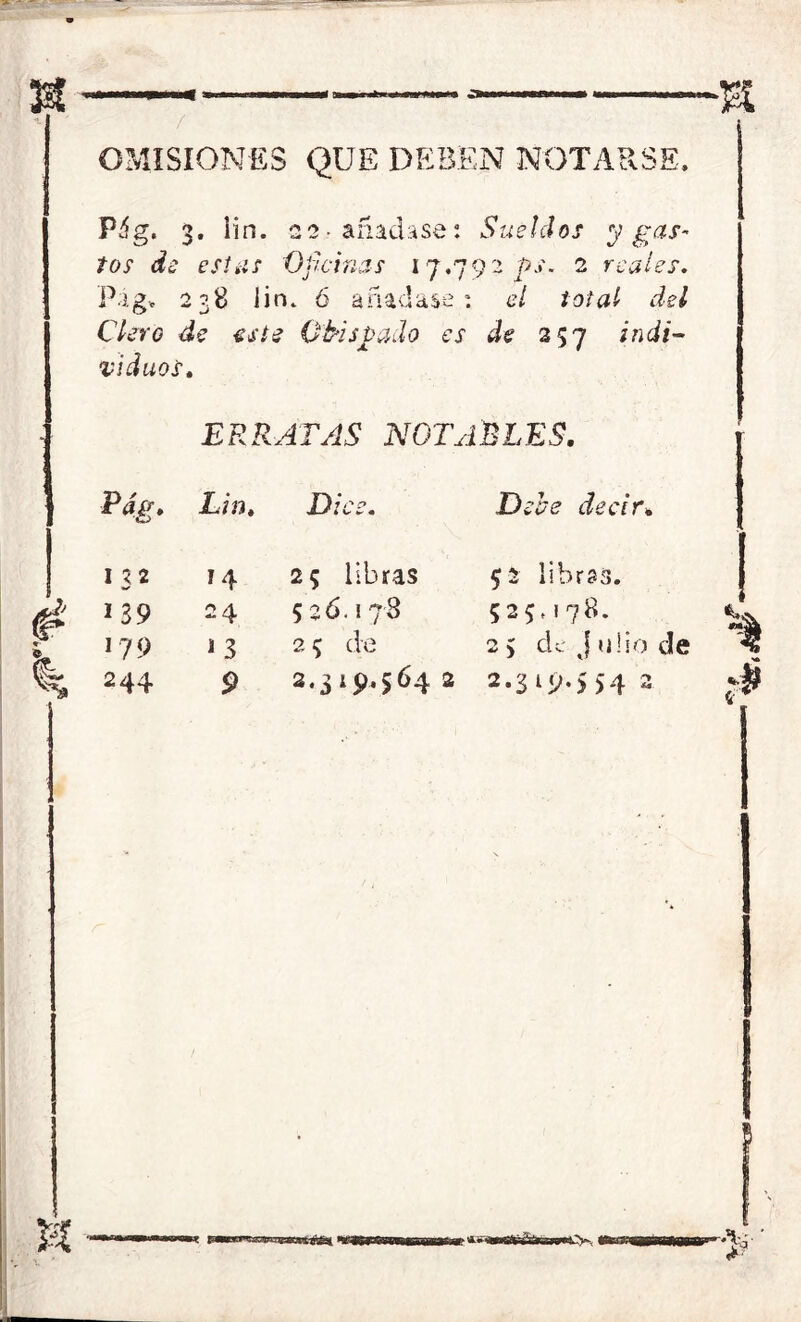 OMISIONES QUE DEBEN NOTARSE.
Pág. 3. lin. 22. añadase: Sueldos y gas-
tos de estas Oficinas 17.792 ps. 2 reales.
Pag. 238 lin. 6 añadase: el total del
Clero de este Obispado es de 257 indi-
viduos.
ERRATAS NOTABLES.
Pág. Lin. Dice. Debe decir.
132 14 25 libras 52 libras.
139 24 526.178 525.178.
179 13 25 de 25 de Julio de
244 9 2.319.564 2 2.319.554 2